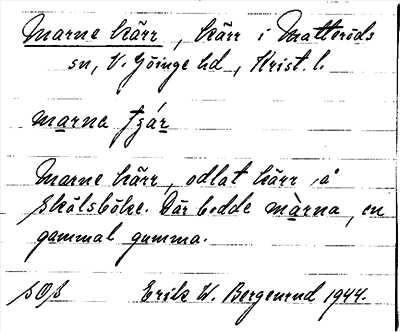 Marne kärr, kärr i Matteröds
sn, V. Göinge hd, Krist. l.
marna
Marne kärr, odlat kärr å
Skålsböke. Där bodde màrna, en
gammal gumma.
Erik W. Bergenrud 1944.